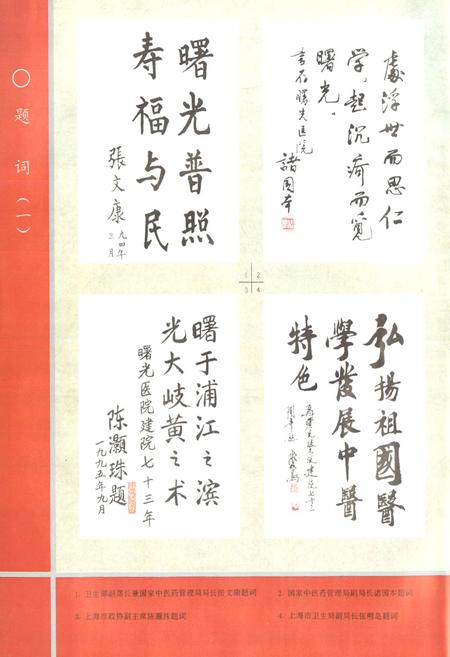 ○ 题词（一）
曙光普照
寿福与民
張文康
九四年
三月
處浮世而思仁
学，起沉疴而覓
曙光。
书存曙光医院
諸國本
1 2
3 4
曙于浦江之滨
光大岐黄之术
曙光医院建院七十三年
陈灏珠題
一九九五年九月
弘揚祖國醫
學發展中醫
特色
1. 卫生部副部长兼国家中医药管理局局长张文康题词
2. 国家中医药管理局副局长诸国本题词
3. 上海市政协副主席陈灏珠题词
4. 上海市卫生局副局长张明岛题词